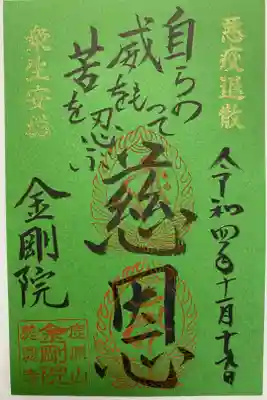 悪疫退散
令和四年十一月十日
自らの
威をもって
苦を忍ぶ
慈恩
衆生安穏
金剛院
金剛院